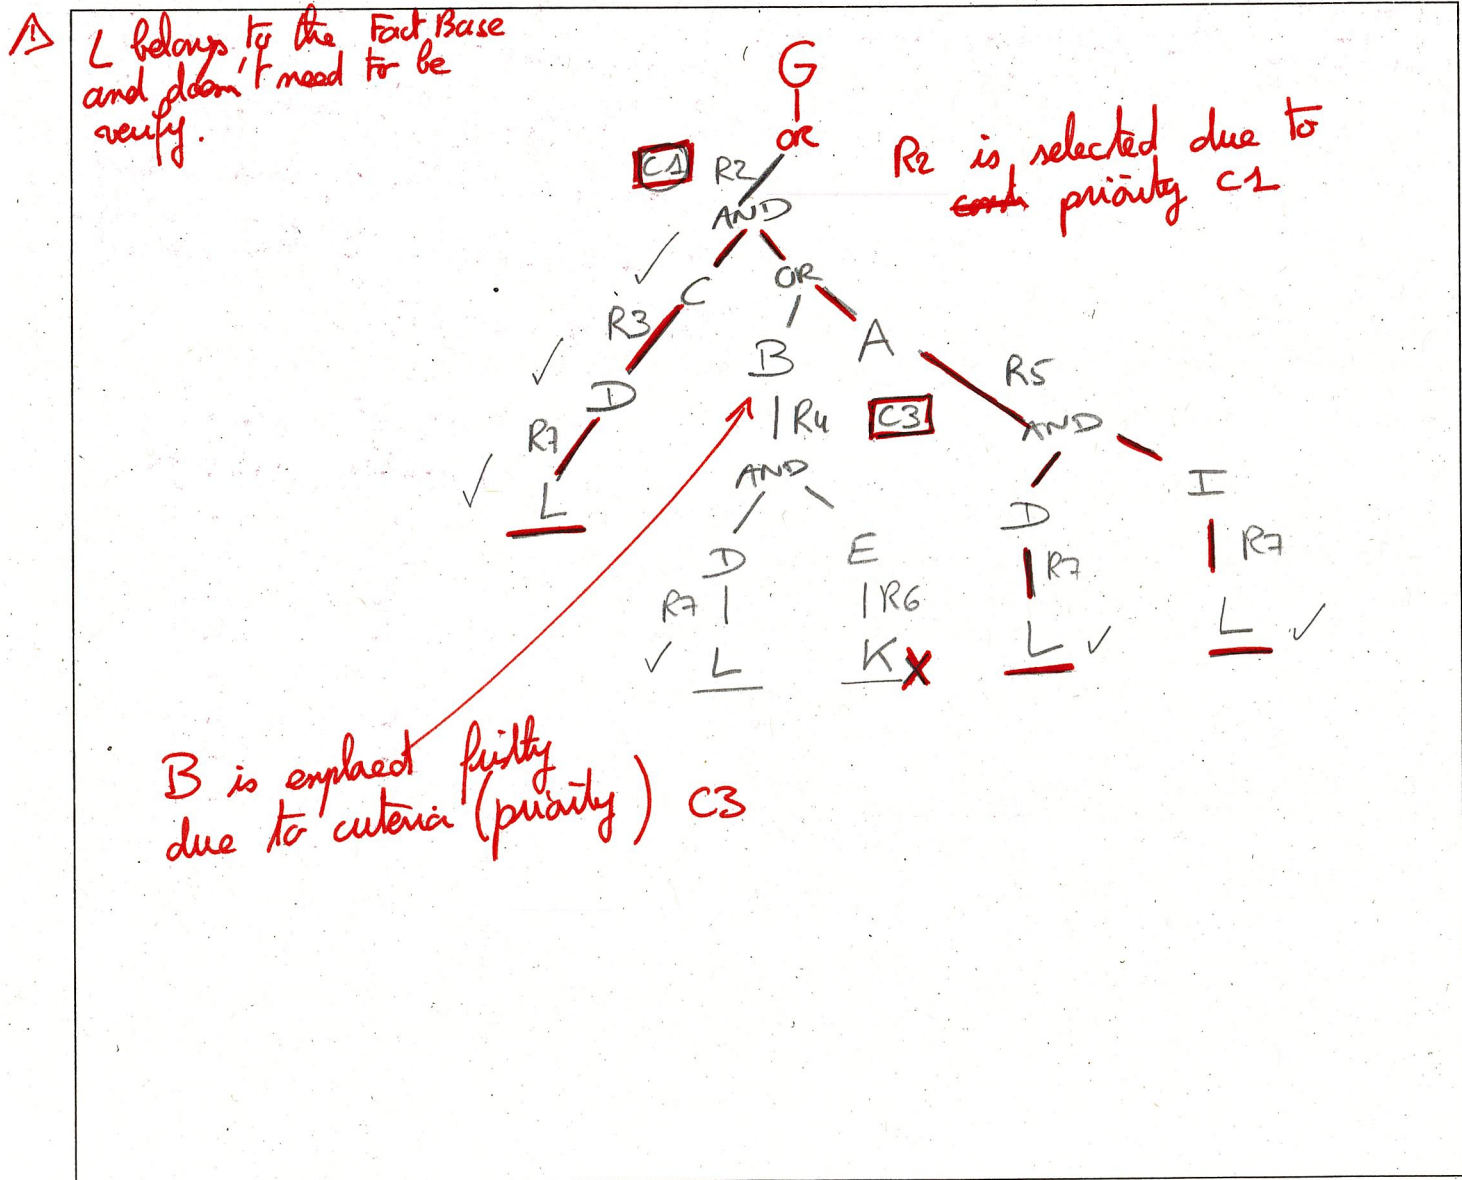 L belongs to the Fact Base
and doesn't need to be
verify.
G
OR
C1 R2
R2 is selected due to
priority C1
AND
C OR
R3 B A
R5
D R4 C3 AND
R7 AND I
L D E D R7
R7 R6 R7
L K X L L
B is explaced firstly
due to criteria (priority) C3